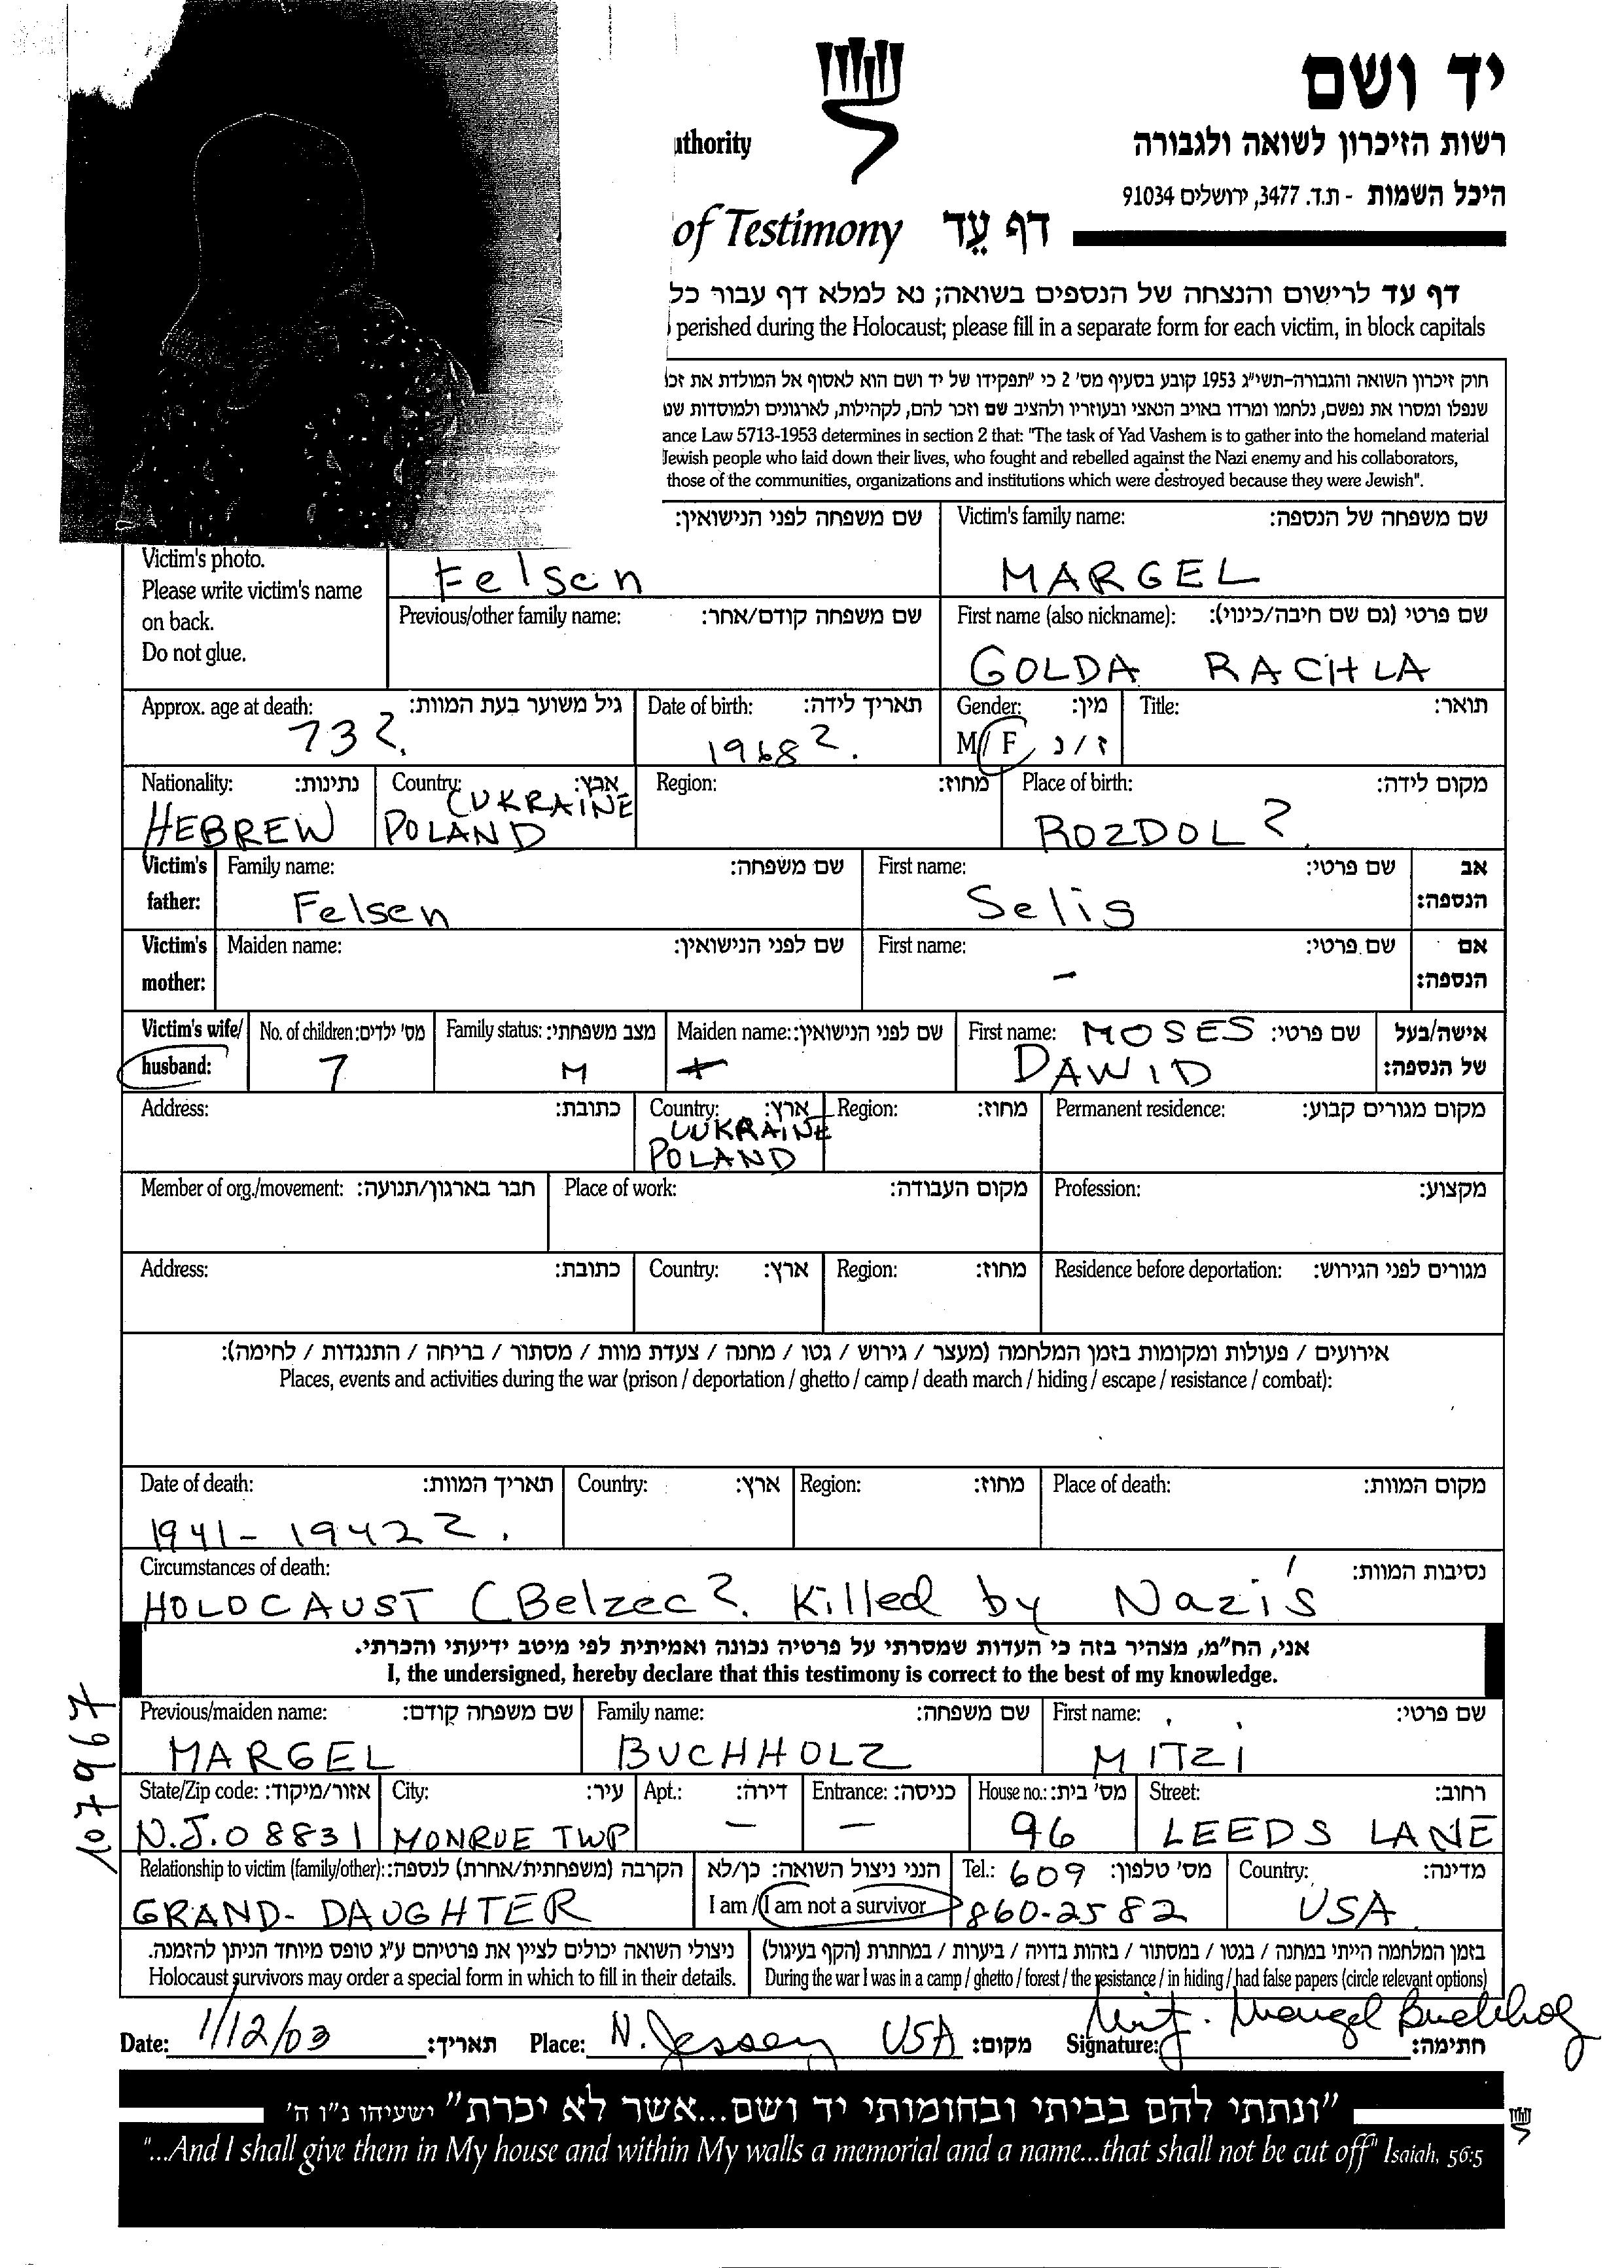 יד ושם
רשות הזיכרון לשואה ולגבורה
uthority
היכל השמות - ת.ד. 3477, ירושלים 91034
of Testimony דף עֵד
דף עד לרישום והנצחה של הנספים בשואה; נא למלא דף עבור כל
perished during the Holocaust; please fill in a separate form for each victim, in block capitals
חוק זיכרון השואה והגבורה-תשי"ג 1953 קובע בסעיף מס' 2 כי "תפקידו של יד ושם הוא לאסוף אל המולדת את זכ
שנפלו ומסרו את נפשם, נלחמו ומרדו באויב הנאצי ובעוזריו ולהציב שם וזכר להם, לקהילות, לארגונים ולמוסדות שנ
ance Law 5713-1953 determines in section 2 that: "The task of Yad Vashem is to gather into the homeland material
Jewish people who laid down their lives, who fought and rebelled against the Nazi enemy and his collaborators,
those of the communities, organizations and institutions which were destroyed because they were Jewish".
שם משפחה לפני הנישואין: Victim's family name: שם משפחה של הנספה:
Victim's photo.
Please write victim's name
on back.
Do not glue.
Felsen MARGEL
Previous/other family name: שם משפחה קודם/אחר: First name (also nickname): שם פרטי (גם שם חיבה/כינוי):
GOLDA RACHLA
Approx. age at death: גיל משוער בעת המוות: Date of birth: תאריך לידה: Gender: מין: Title: תואר:
73 ?. 1968 ?. M / F ז / נ
Nationality: נתינות: Country: ארץ: Region: מחוז: Place of birth: מקום לידה:
HEBREW (UKRAINE POLAND ROZDOL ?.
Victim's father: Family name: שם משפחה: First name: שם פרטי: אב הנספה:
Felsen Selig
Victim's mother: Maiden name: שם לפני הנישואין: First name: שם פרטי: אם הנספה:
–
Victim's wife/ husband: No. of children: מס' ילדים: Family status: מצב משפחתי: Maiden name: שם לפני הנישואין: First name: שם פרטי: אישה/בעל של הנספה:
7 M MOSES DAWID
Address: כתובת: Country: ארץ: Region: מחוז: Permanent residence: מקום מגורים קבוע:
UKRAINE POLAND
Member of org./movement: חבר בארגון/תנועה: Place of work: מקום העבודה: Profession: מקצוע:
Address: כתובת: Country: ארץ: Region: מחוז: Residence before deportation: מגורים לפני הגירוש:
אירועים / פעולות ומקומות בזמן המלחמה (מעצר / גירוש / גטו / מחנה / צעדת מוות / מסתור / בריחה / התנגדות / לחימה):
Places, events and activities during the war (prison / deportation / ghetto / camp / death march / hiding / escape / resistance / combat):
Date of death: תאריך המוות: Country: ארץ: Region: מחוז: Place of death: מקום המוות:
1941 - 1942 ?.
Circumstances of death: נסיבות המוות:
HOLOCAUST (Belzec ?. Killed by Nazi's
אני, הח"מ, מצהיר בזה כי העדות שמסרתי על פרטיה נכונה ואמיתית לפי מיטב ידיעתי והכרתי.
I, the undersigned, hereby declare that this testimony is correct to the best of my knowledge.
107967
Previous/maiden name: שם משפחה קודם: Family name: שם משפחה: First name: שם פרטי:
MARGEL BUCHHOLZ MITZI
State/Zip code: אזור/מיקוד: City: עיר: Apt.: דירה: Entrance: כניסה: House no.: מס' בית: Street: רחוב:
N.J. 08831 MONROE TWP – – 96 LEEDS LANE
Relationship to victim (family/other): הקרבה (משפחתית/אחרת) לנספה: הנני ניצול השואה: כן/לא Tel.: 609 מס' טלפון: Country: מדינה:
GRAND-DAUGHTER I am / I am not a survivor 860-2582 USA
ניצולי השואה יכולים לציין את פרטיהם ע"ג טופס מיוחד הניתן להזמנה. בזמן המלחמה הייתי במחנה / בגטו / במסתור / בזהות בדויה / ביערות / במחתרת (הקף בעיגול)
Holocaust survivors may order a special form in which to fill in their details. During the war I was in a camp / ghetto / forest / the resistance / in hiding / had false papers (circle relevant options)
Date: 1/12/03 תאריך: Place: N. Jersey USA מקום: Signature: Mitzi Margel Buchholz חתימה:
"ונתתי להם בביתי ובחומותי יד ושם...אשר לא יכרת" ישעיהו נ"ו ה'
"...And I shall give them in My house and within My walls a memorial and a name...that shall not be cut off" Isaiah, 56:5